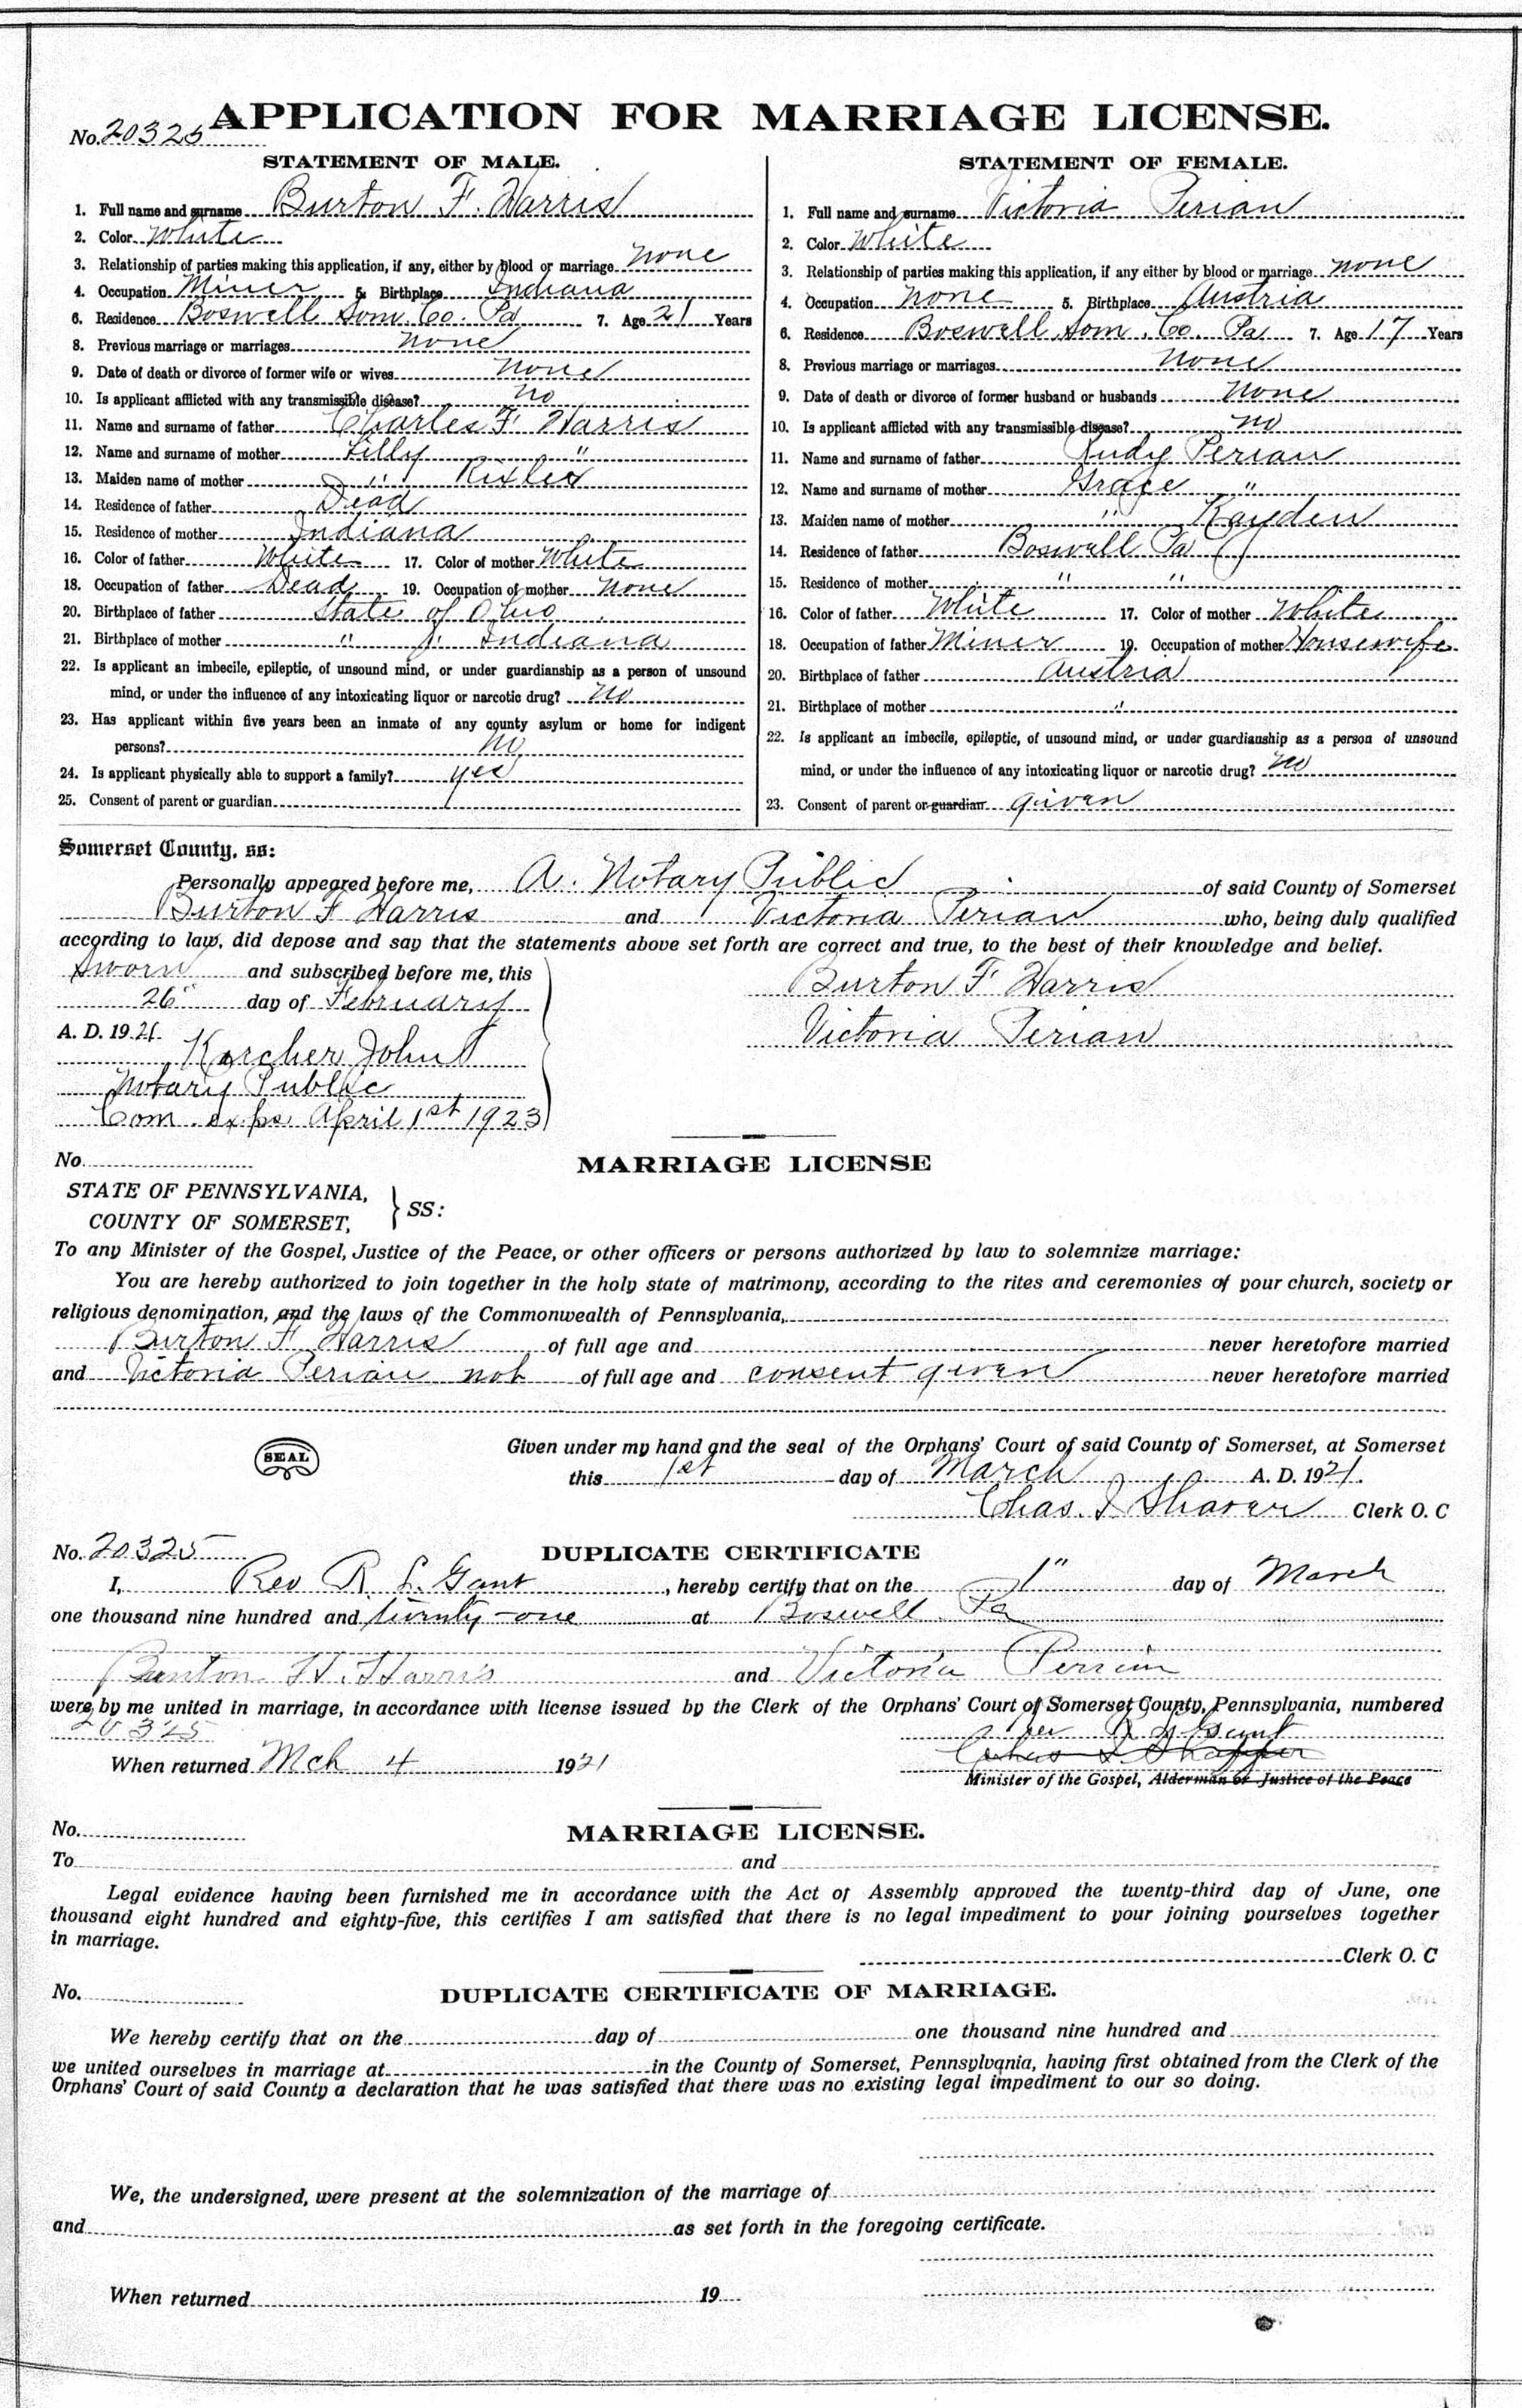 APPLICATION FOR MARRIAGE LICENSE.
No. 20325
STATEMENT OF MALE.
1. Full name and surname Burton F. Harris
2. Color White
3. Relationship of parties making this application, if any, either by blood or marriage none
4. Occupation Miner 5. Birthplace Indiana
6. Residence Boswell Som. Co. Pa 7. Age 21 Years
8. Previous marriage or marriages none
9. Date of death or divorce of former wife or wives none
10. Is applicant afflicted with any transmissible disease? no
11. Name and surname of father Charles F Harris
12. Name and surname of mother Lilly "
13. Maiden name of mother "
14. Residence of father Dead
15. Residence of mother Indiana
16. Color of father White 17. Color of mother White
18. Occupation of father Dead 19. Occupation of mother none
20. Birthplace of father State of Ohio
21. Birthplace of mother " " Indiana
22. Is applicant an imbecile, epileptic, of unsound mind, or under guardianship as a person of unsound
mind, or under the influence of any intoxicating liquor or narcotic drug? no
23. Has applicant within five years been an inmate of any county asylum or home for indigent
persons? no
24. Is applicant physically able to support a family? yes
25. Consent of parent or guardian
STATEMENT OF FEMALE.
1. Full name and surname Victoria Perian
2. Color White
3. Relationship of parties making this application, if any either by blood or marriage none
4. Occupation none 5. Birthplace Austria
6. Residence Boswell, Som. Co. Pa 7. Age 17 Years
8. Previous marriage or marriages none
9. Date of death or divorce of former husband or husbands none
10. Is applicant afflicted with any transmissible disease? no
11. Name and surname of father Rudy Perian
12. Name and surname of mother Grace "
13. Maiden name of mother " Kayden
14. Residence of father Boswell Pa
15. Residence of mother " "
16. Color of father White 17. Color of mother White
18. Occupation of father Miner 19. Occupation of mother Housewife
20. Birthplace of father Austria
21. Birthplace of mother "
22. Is applicant an imbecile, epileptic, of unsound mind, or under guardianship as a person of unsound
mind, or under the influence of any intoxicating liquor or narcotic drug? no
23. Consent of parent or guardian given
Somerset County, ss:
Personally appeared before me, A. Notary Public of said County of Somerset
Burton F Harris and Victoria Perian who, being duly qualified
according to law, did depose and say that the statements above set forth are correct and true, to the best of their knowledge and belief.
Sworn and subscribed before me, this
26" day of February
A. D. 1921.
Karcher John
Notary Public
Com. exps. April 1st 1923
Burton F Harris
Victoria Perian
No.
MARRIAGE LICENSE
STATE OF PENNSYLVANIA,
COUNTY OF SOMERSET, } SS:
To any Minister of the Gospel, Justice of the Peace, or other officers or persons authorized by law to solemnize marriage:
You are hereby authorized to join together in the holy state of matrimony, according to the rites and ceremonies of your church, society or
religious denomination, and the laws of the Commonwealth of Pennsylvania,
Burton F Harris of full age and never heretofore married
and Victoria Perian not of full age and consent given never heretofore married
SEAL
Given under my hand and the seal of the Orphans' Court of said County of Somerset, at Somerset
this 1st day of March A. D. 1921.
Chas. I Shaver Clerk O. C
No. 20325
DUPLICATE CERTIFICATE
I, Rev R. L. Gant, hereby certify that on the 1" day of March
one thousand nine hundred and twenty-one at Boswell Pa
Bunton H. Harris and Victoria Perrian
were by me united in marriage, in accordance with license issued by the Clerk of the Orphans' Court of Somerset County, Pennsylvania, numbered
20325
When returned Mch 4 1921
Minister of the Gospel, Alderman or Justice of the Peace
No.
MARRIAGE LICENSE.
To and
Legal evidence having been furnished me in accordance with the Act of Assembly approved the twenty-third day of June, one
thousand eight hundred and eighty-five, this certifies I am satisfied that there is no legal impediment to your joining yourselves together
in marriage.
Clerk O. C
No.
DUPLICATE CERTIFICATE OF MARRIAGE.
We hereby certify that on the day of one thousand nine hundred and
we united ourselves in marriage at in the County of Somerset, Pennsylvania, having first obtained from the Clerk of the
Orphans' Court of said County a declaration that he was satisfied that there was no existing legal impediment to our so doing.
We, the undersigned, were present at the solemnization of the marriage of
and as set forth in the foregoing certificate.
When returned 19